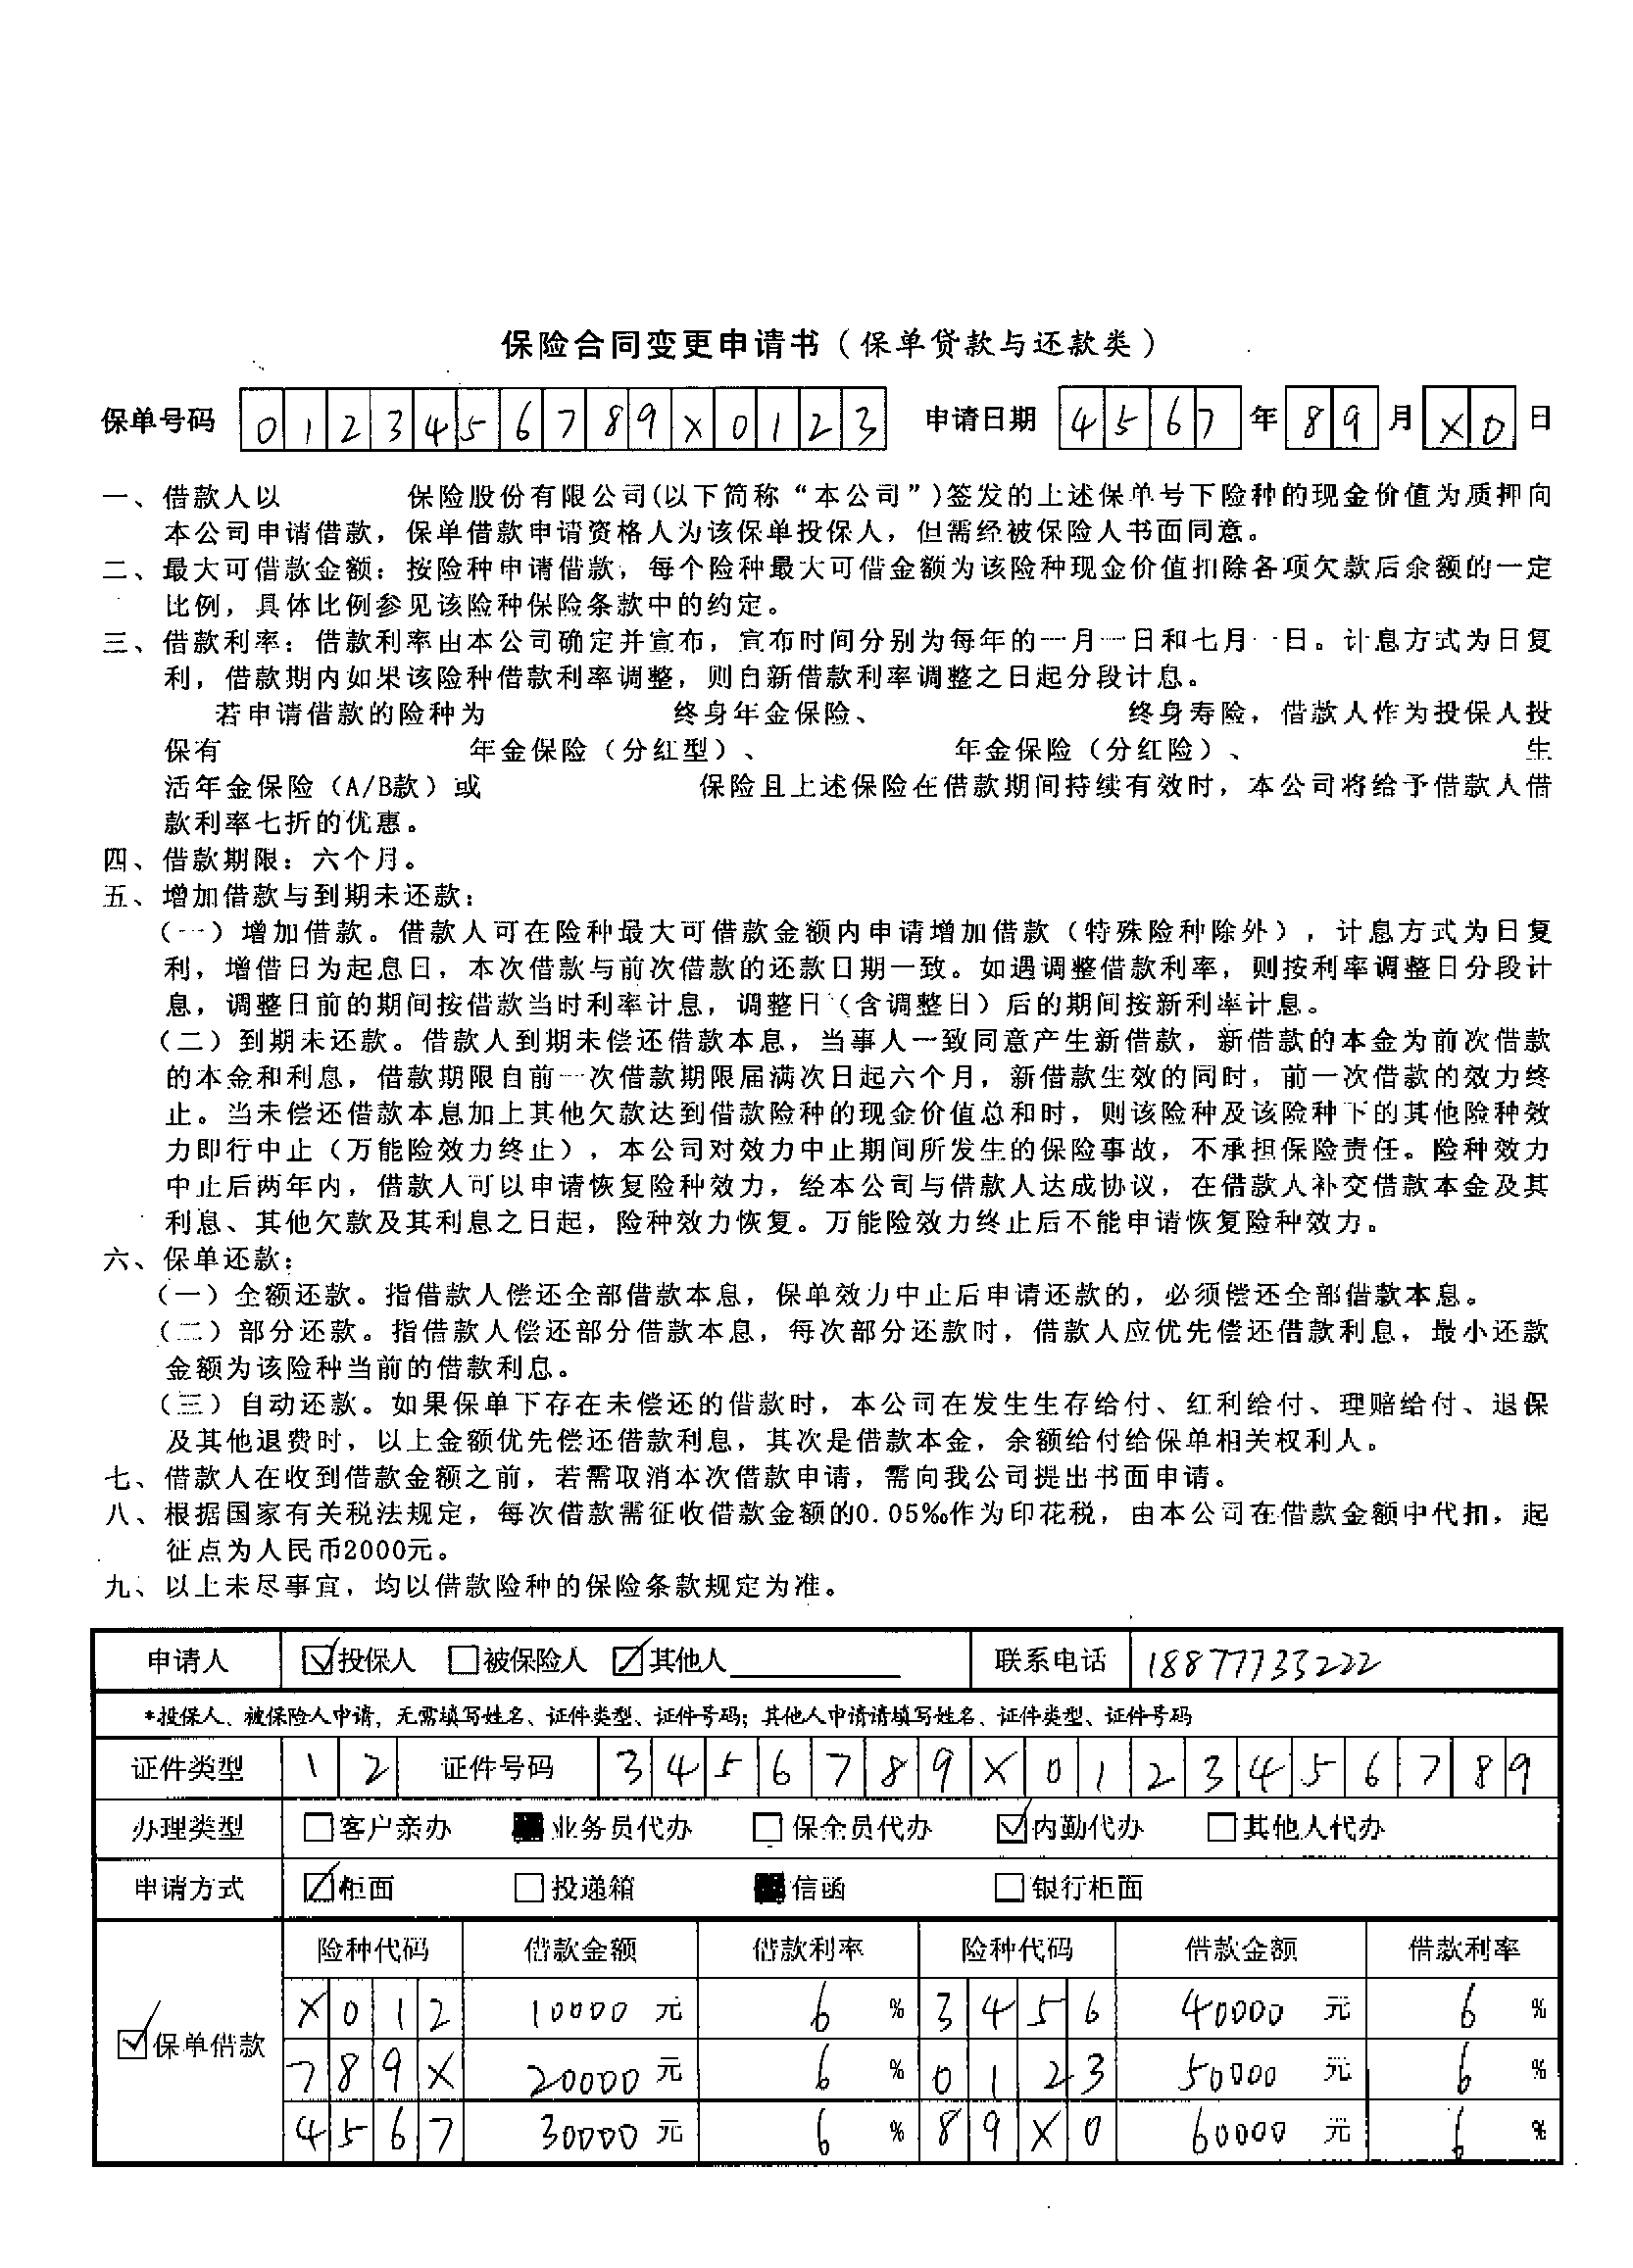 保险合同变更申请书（保单贷款与还款类）
保单号码 0 1 2 3 4 5 6 7 8 9 X 0 1 2 3 申请日期 4 5 6 7 年 8 9 月 X 0 日
一、借款人以 保险股份有限公司(以下简称“本公司”)签发的上述保单号下险种的现金价值为质押向
本公司申请借款，保单借款申请资格人为该保单投保人，但需经被保险人书面同意。
二、最大可借款金额：按险种申请借款，每个险种最大可借金额为该险种现金价值扣除各项欠款后余额的一定
比例，具体比例参见该险种保险条款中的约定。
三、借款利率：借款利率由本公司确定并宣布，宣布时间分别为每年的一月一日和七月一日。计息方式为日复
利，借款期内如果该险种借款利率调整，则自新借款利率调整之日起分段计息。
若申请借款的险种为 终身年金保险、 终身寿险，借款人作为投保人投
保有 年金保险（分红型）、 年金保险（分红险）、 生
活年金保险（A/B款）或 保险且上述保险在借款期间持续有效时，本公司将给予借款人借
款利率七折的优惠。
四、借款期限：六个月。
五、增加借款与到期未还款：
（一）增加借款。借款人可在险种最大可借款金额内申请增加借款（特殊险种除外），计息方式为日复
利，增借日为起息日，本次借款与前次借款的还款日期一致。如遇调整借款利率，则按利率调整日分段计
息，调整日前的期间按借款当时利率计息，调整日（含调整日）后的期间按新利率计息。
（二）到期未还款。借款人到期未偿还借款本息，当事人一致同意产生新借款，新借款的本金为前次借款
的本金和利息，借款期限自前一次借款期限届满次日起六个月，新借款生效的同时，前一次借款的效力终
止。当未偿还借款本息加上其他欠款达到借款险种的现金价值总和时，则该险种及该险种下的其他险种效
力即行中止（万能险效力终止），本公司对效力中止期间所发生的保险事故，不承担保险责任。险种效力
中止后两年内，借款人可以申请恢复险种效力，经本公司与借款人达成协议，在借款人补交借款本金及其
利息、其他欠款及其利息之日起，险种效力恢复。万能险效力终止后不能申请恢复险种效力。
六、保单还款：
（一）全额还款。指借款人偿还全部借款本息，保单效力中止后申请还款的，必须偿还全部借款本息。
（二）部分还款。指借款人偿还部分借款本息，每次部分还款时，借款人应优先偿还借款利息，最小还款
金额为该险种当前的借款利息。
（三）自动还款。如果保单下存在未偿还的借款时，本公司在发生生存给付、红利给付、理赔给付、退保
及其他退费时，以上金额优先偿还借款利息，其次是借款本金，余额给付给保单相关权利人。
七、借款人在收到借款金额之前，若需取消本次借款申请，需向我公司提出书面申请。
八、根据国家有关税法规定，每次借款需征收借款金额的0.05‰作为印花税，由本公司在借款金额中代扣，起
征点为人民币2000元。
九、以上未尽事宜，均以借款险种的保险条款规定为准。
申请人 ☑投保人 □被保险人 ☑其他人 联系电话 18877733222
*投保人、被保险人申请，无需填写姓名、证件类型、证件号码；其他人申请请填写姓名、证件类型、证件号码
证件类型 1 2 证件号码 3 4 5 6 7 8 9 X 0 1 2 3 4 5 6 7 8 9
办理类型 □客户亲办 ■业务员代办 □保全员代办 ☑内勤代办 □其他人代办
申请方式 ☑柜面 □投递箱 ■信函 □银行柜面
险种代码 借款金额 借款利率 险种代码 借款金额 借款利率
X 0 1 2 10000 元 6 % 3 4 5 6 40000 元 6 %
☑保单借款
7 8 9 X 20000 元 6 % 0 1 2 3 50000 元 6 %
4 5 6 7 30000 元 6 % 8 9 X 0 60000 元 6 %